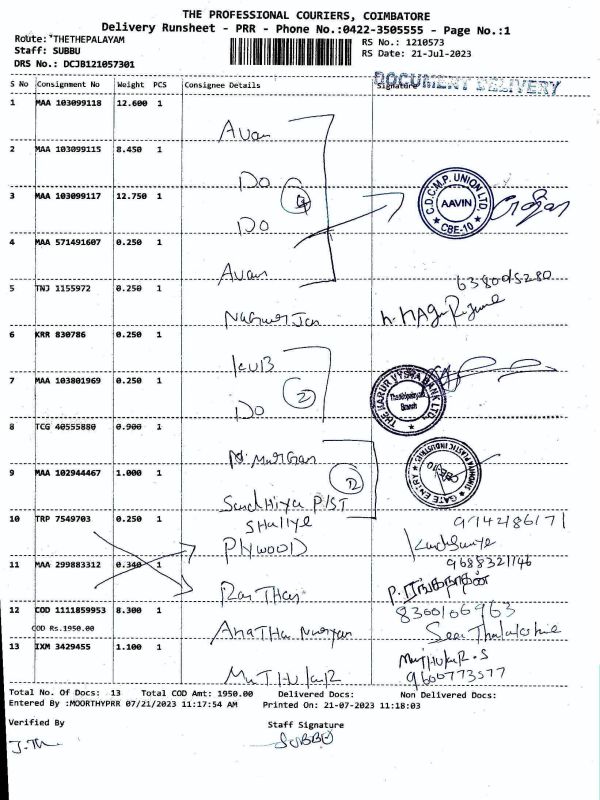 THE PROFESSIONAL COURIERS, COIMBATORE
Delivery Runsheet - PRR - Phone No.:0422-3505555 - Page No.:1
Route: THETHEPALAYAM
RS No.: 1210573
Staff: SUBBU
RS Date: 21-Jul-2023
DRS No.: DCJB121057301
DOCUMENT DELIVERY
S No Consignment No Weight PCS Consignee Details Signature
1 MAA 103099118 12.600 1
Avan
2 MAA 103099115 8.450 1
Do
3 MAA 103099117 12.750 1
Do
C.D.C.M.P. UNION LTD. AAVIN CBE-10
4 MAA 571491607 0.250 1
Avan
5 TNJ 1155972 0.250 1
6 KRR 830786 0.250 1
KVB
7 MAA 103801969 0.250 1
2
Do
THE KARUR VYSYA BANK LTD. Branch
8 TCG 40555880 0.900 1
N. Murgan
9 MAA 102944467 1.000 1
2
GATE ENTRY
10 TRP 7549703 0.250 1
9742186171
PLYWOOD
9688321146
11 MAA 299883312 0.340 1
12 COD 1111859953 8.300 1
8300106963
COD Rs.1950.00
13 IXM 3429455 1.100 1
MuTHuKAR.S
MuTHuKAR
9600773577
Total No. Of Docs: 13 Total COD Amt: 1950.00 Delivered Docs: Non Delivered Docs:
Entered By :MOORTHYPRR 07/21/2023 11:17:54 AM Printed On: 21-07-2023 11:18:03
Verified By
Staff Signature
SUBBU